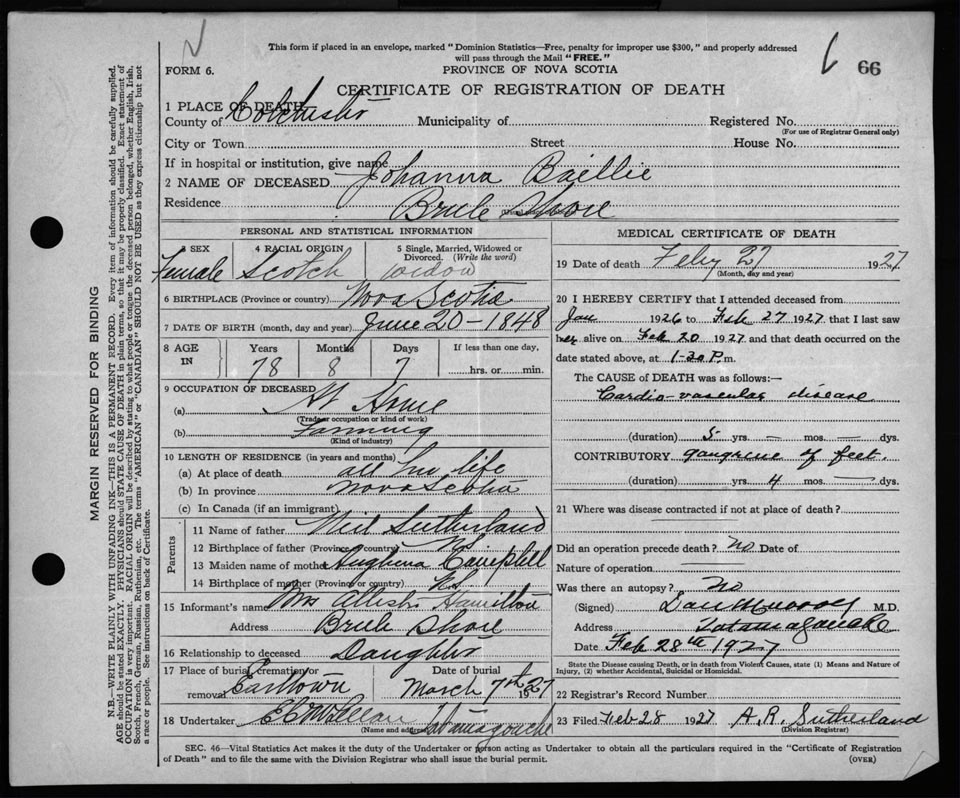 This form if placed in an envelope, marked "Dominion Statistics—Free, penalty for improper use $300," and properly addressed
will pass through the Mail "FREE."
66
FORM 6.
PROVINCE OF NOVA SCOTIA
CERTIFICATE OF REGISTRATION OF DEATH
1 PLACE OF DEATH
County of Colchester Municipality of Registered No.
(For use of Registrar General only)
City or Town Street House No.
If in hospital or institution, give name
2 NAME OF DECEASED Johanna Baillie
Residence Brule Shore
PERSONAL AND STATISTICAL INFORMATION
3 SEX 4 RACIAL ORIGIN 5 Single, Married, Widowed or Divorced. (Write the word)
Female Scotch widow
6 BIRTHPLACE (Province or country) Nova Scotia
7 DATE OF BIRTH (month, day and year) June 20 - 1848
8 AGE IN Years Months Days If less than one day,
78 8 7 hrs. or min.
9 OCCUPATION OF DECEASED
(a) At Home
(Trade or occupation or kind of work)
(b) Farming
(Kind of industry)
10 LENGTH OF RESIDENCE (in years and months)
(a) At place of death all her life
(b) In province Nova Scotia
(c) In Canada (if an immigrant)
Parents
11 Name of father Neil Sutherland
12 Birthplace of father (Province or country) N.S.
13 Maiden name of mother Campbell
14 Birthplace of mother (Province or country) N.S.
15 Informant's name Mrs Hamilton
Address Brule Shore
16 Relationship to deceased Daughter
17 Place of burial, cremation or removal Earltown Date of burial March 7th 1927
18 Undertaker Tatamagouche
(Name and address)
MEDICAL CERTIFICATE OF DEATH
19 Date of death Feby 27 1927
(Month, day and year)
20 I HEREBY CERTIFY that I attended deceased from
Jan 1926 to Feb 27 1927 that I last saw
her alive on Feb 20 1927 and that death occurred on the
date stated above, at 1-30 P.m.
The CAUSE of DEATH was as follows:—
Cardio-vascular disease
(duration) 5 yrs. — mos. — dys.
CONTRIBUTORY gangrene of feet.
(duration) yrs. 4 mos. — dys.
21 Where was disease contracted if not at place of death?
Did an operation precede death? no Date of
Nature of operation
Was there an autopsy? no
(Signed) M.D.
Address Tatamagouche
Date Feb 28th 1927
State the Disease causing Death, or in death from Violent Causes, state (1) Means and Nature of Injury, (2) whether Accidental, Suicidal or Homicidal.
22 Registrar's Record Number
23 Filed Feb 28 1927 A. R. Sutherland
(Division Registrar)
SEC. 46—Vital Statistics Act makes it the duty of the Undertaker or person acting as Undertaker to obtain all the particulars required in the "Certificate of Registration
of Death" and to file the same with the Division Registrar who shall issue the burial permit. (OVER)
MARGIN RESERVED FOR BINDING
N.B.—WRITE PLAINLY WITH UNFADING INK—THIS IS A PERMANENT RECORD. Every item of information should be carefully supplied.
AGE should be stated EXACTLY. PHYSICIANS should STATE CAUSE OF DEATH in plain terms, so that it may be properly classified. Exact statement of
OCCUPATION is very important. RACIAL ORIGIN will be described by stating to what people or tongue the deceased person belonged, whether English, Irish,
Scotch, French, German, Russian, Ruthenian, etc. The terms "AMERICAN" or "CANADIAN" SHOULD NOT BE USED as they express citizenship but not
a race or people. See instructions on back of Certificate.